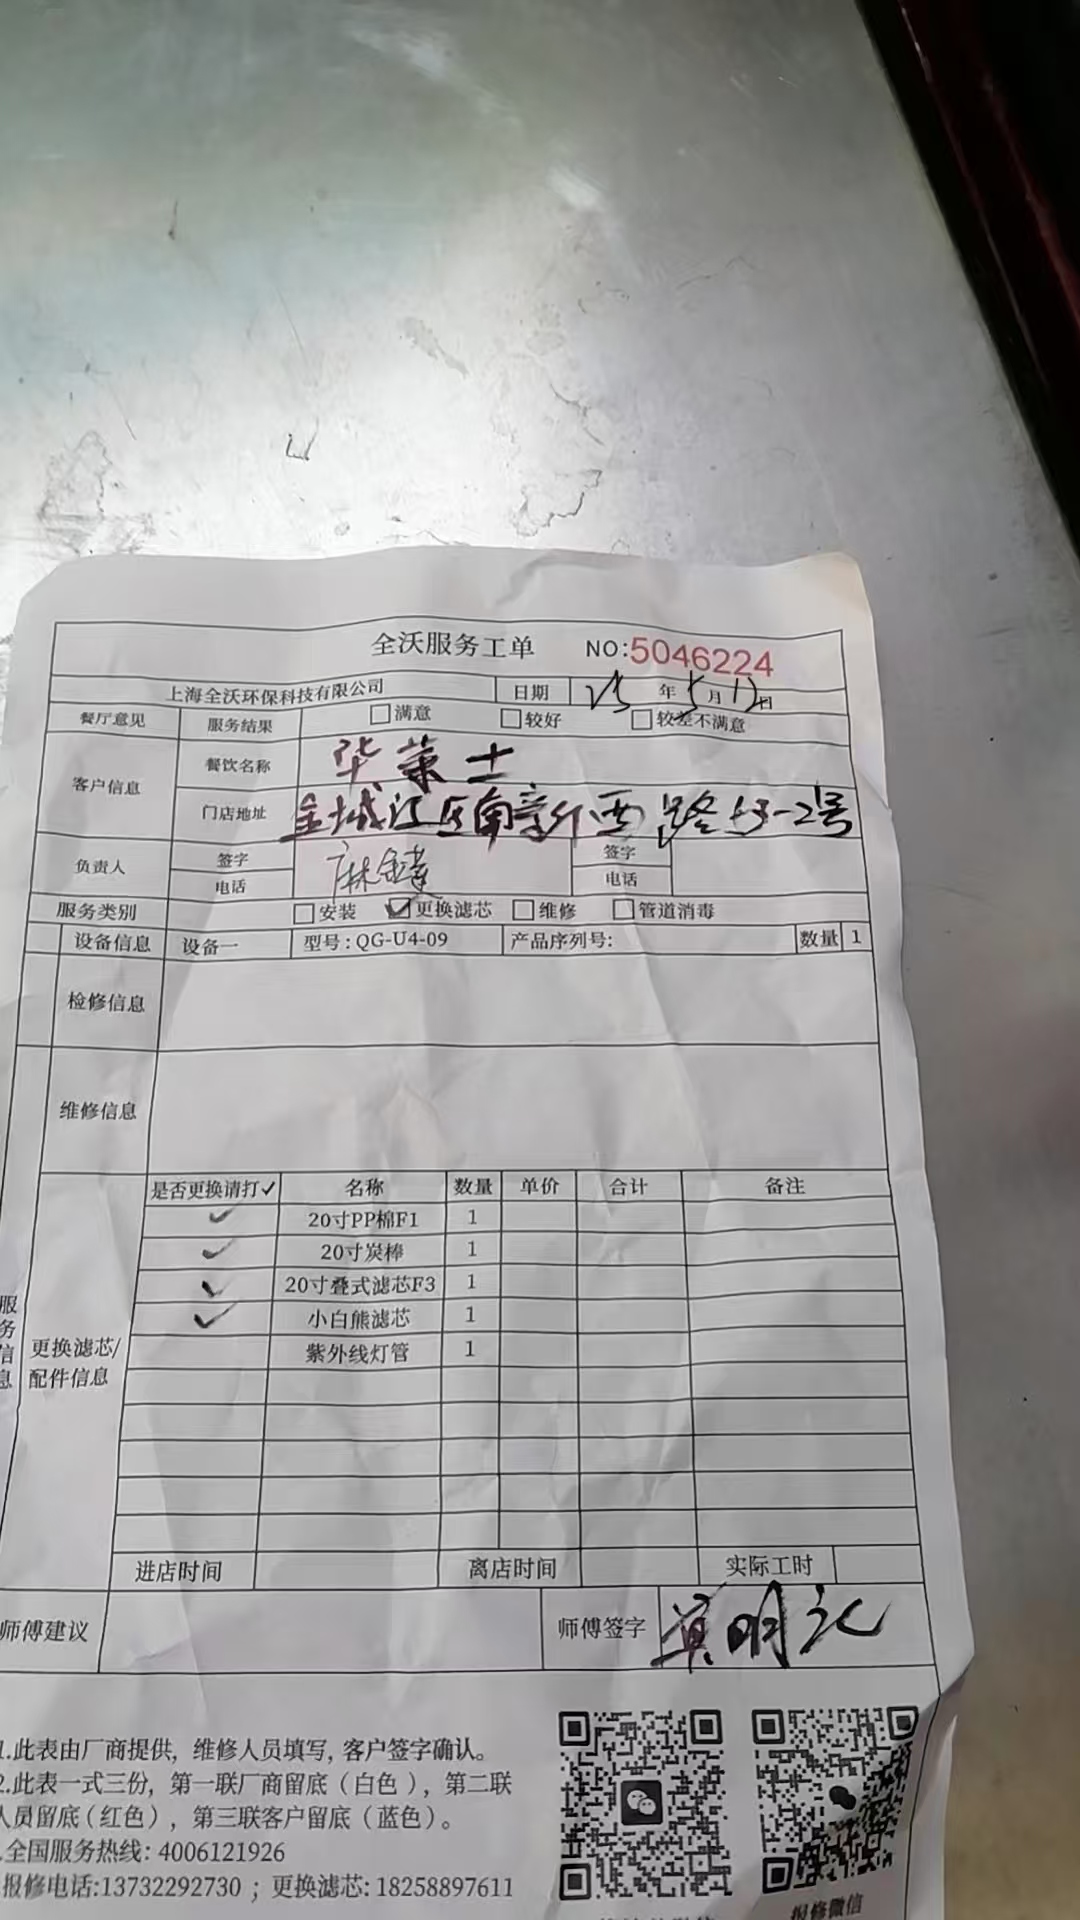 全沃服务工单 NO:5046224
上海全沃环保科技有限公司 日期 25年5月12日
餐厅意见 服务结果 满意 较好 较差不满意
客户信息 餐饮名称 华莱士
门店地址 金城江区南新西路53-2号
负责人 签字 签字
电话 麻 电话
服务类别 安装 更换滤芯 维修 管道消毒
设备信息 设备一 型号:QG-U4-09 产品序列号: 数量 1
检修信息
维修信息
服务信息
更换滤芯/配件信息
是否更换请打✓ 名称 数量 单价 合计 备注
✓ 20寸PP棉F1 1
✓ 20寸炭棒 1
✓ 20寸叠式滤芯F3 1
✓ 小白熊滤芯 1
紫外线灯管 1
进店时间 离店时间 实际工时
师傅建议 师傅签字 明
1.此表由厂商提供, 维修人员填写, 客户签字确认。
2.此表一式三份, 第一联厂商留底(白色), 第二联
人员留底(红色), 第三联客户留底(蓝色)。
.全国服务热线: 4006121926
报修电话:13732292730 ; 更换滤芯: 18258897611
报修微信